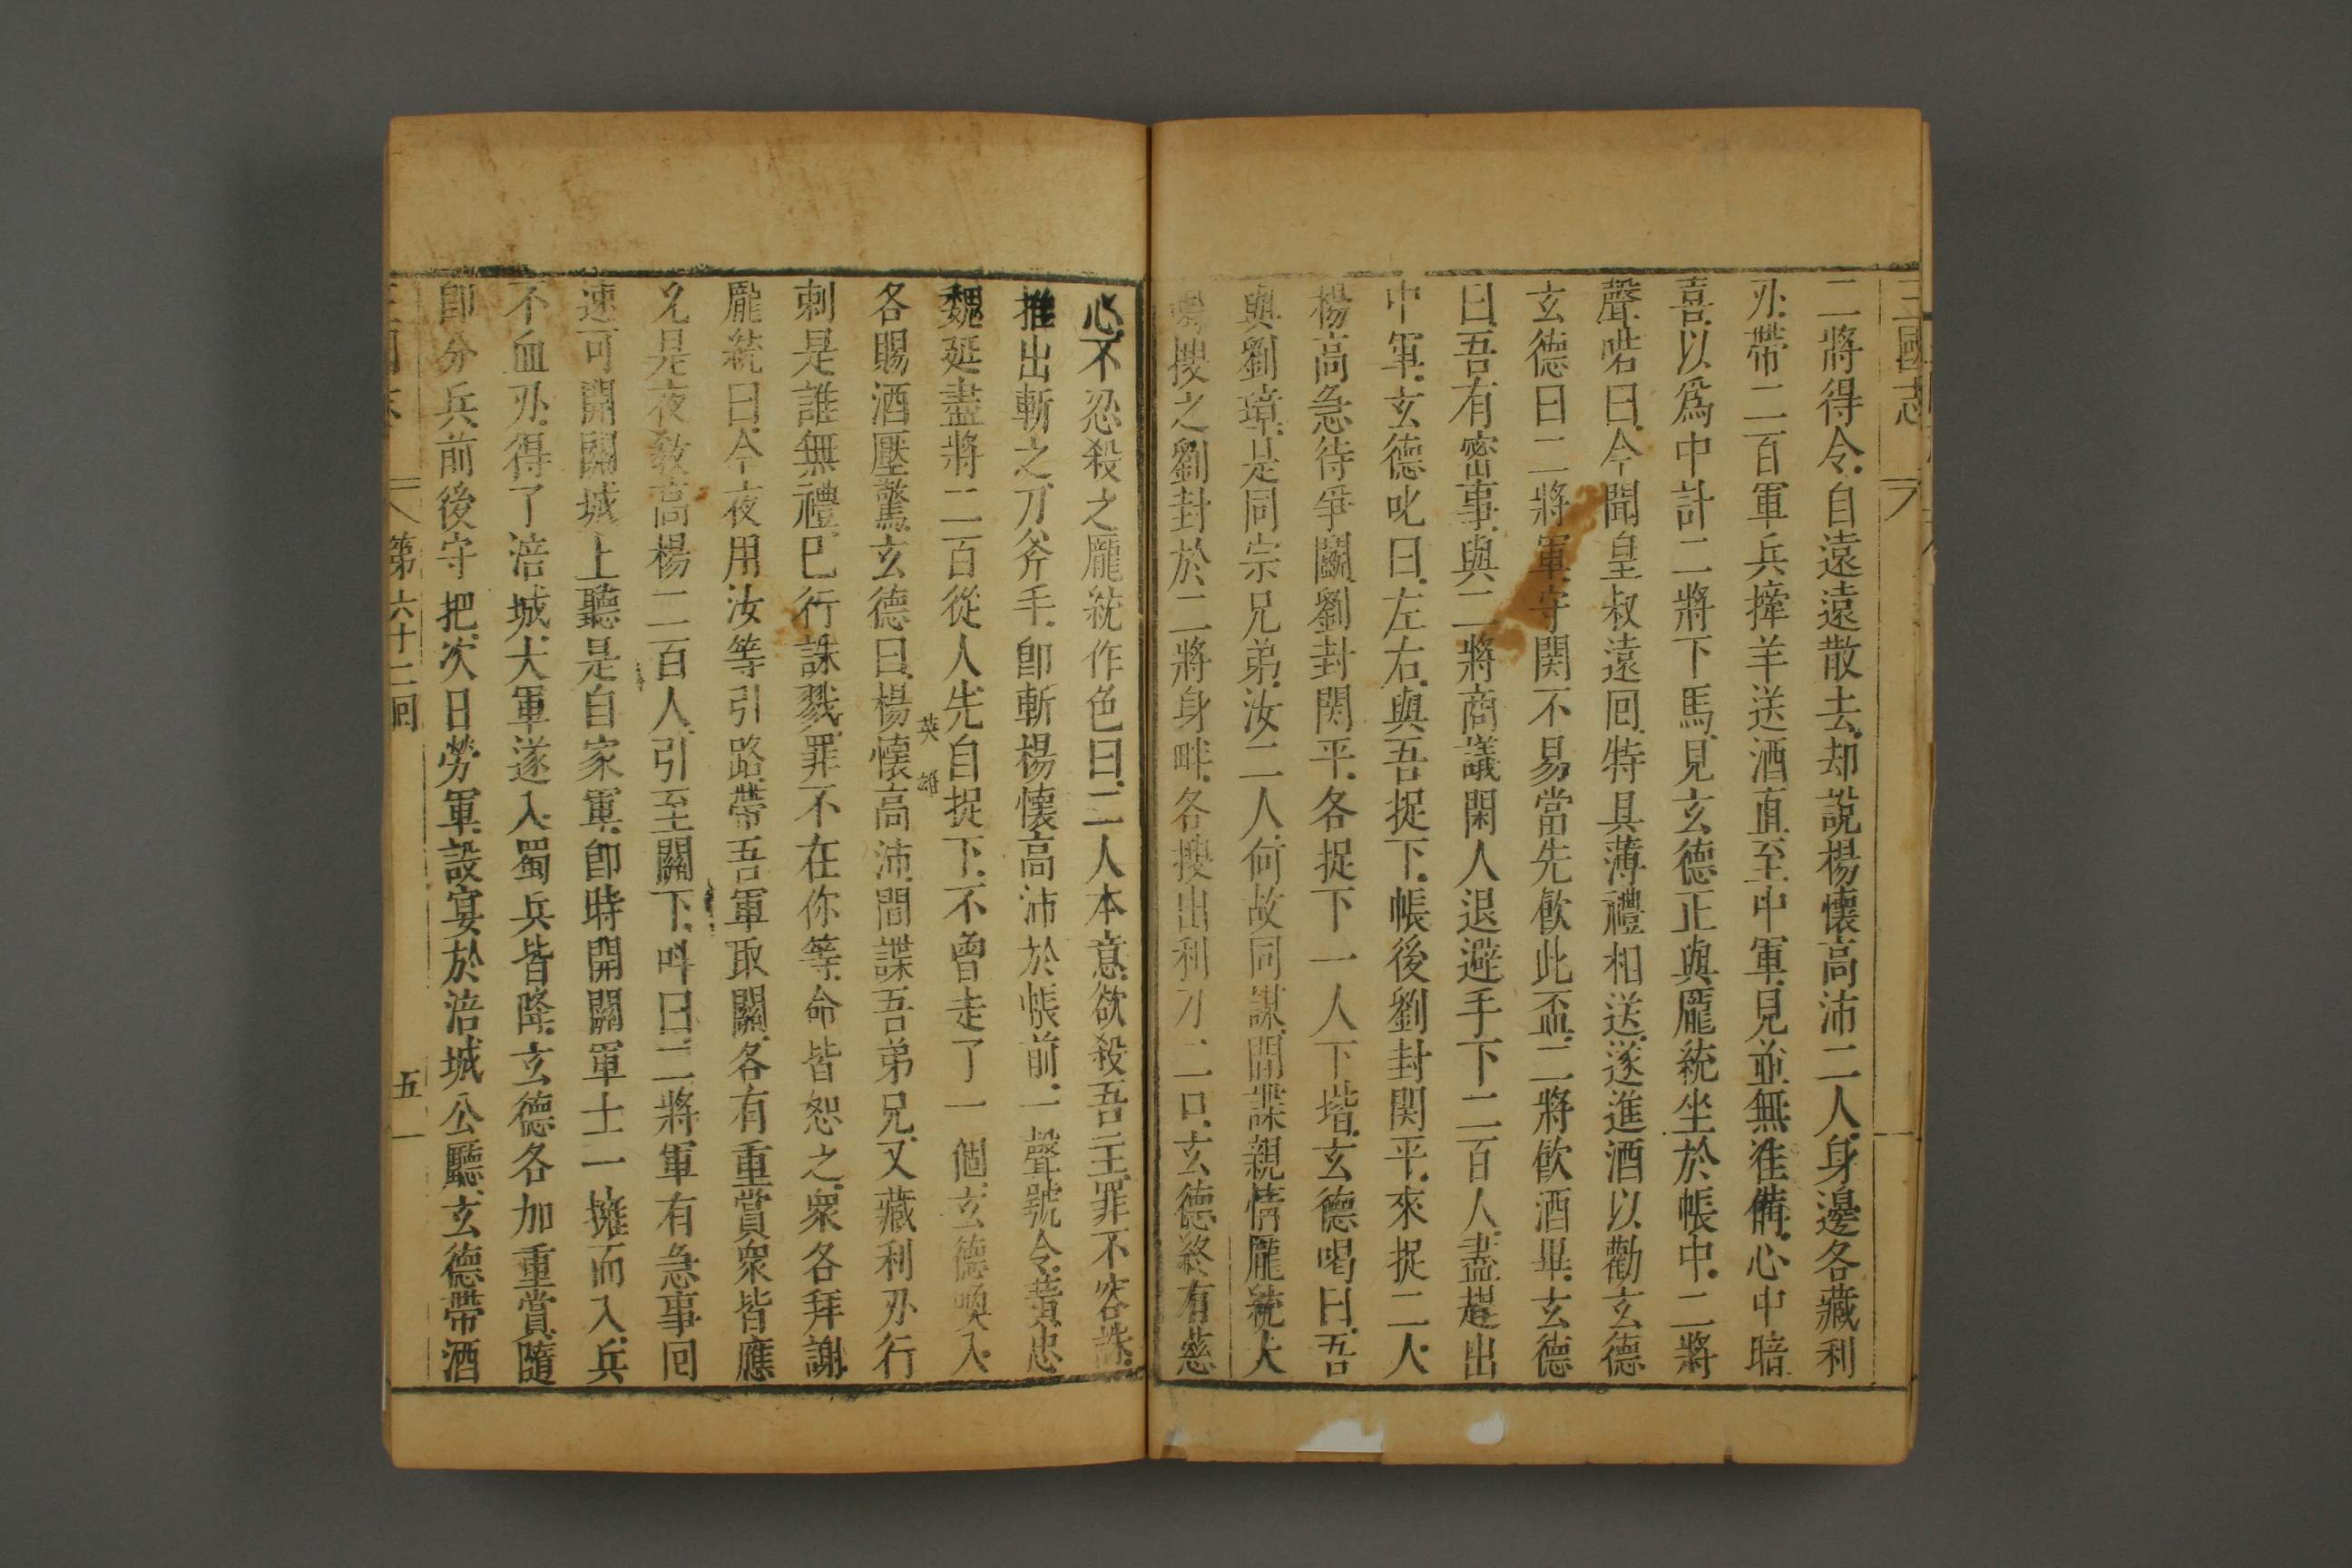 三國志
二將得令自遠遠散去却說楊懷高沛二人身邊各藏利
刃帶二百軍兵擡羊送酒直至中軍見並無准備心中暗
喜以爲中計二將下馬見玄德正與龐統坐於帳中二將
聲喏曰今聞皇叔遠囘特具薄禮相送遂進酒以勸玄德
玄德曰二將軍守関不易當先飲此盃二將飲酒畢玄德
曰吾有密事與二將商議閑人退避手下二百人盡趕出
中軍玄德叱曰左右與吾捉下帳後劉封関平來捉二人
楊高急待爭鬬劉封関平各捉下一人下堦玄德喝曰吾
與劉璋是同宗兄弟汝二人何故同謀間諜親情龐統大
喝搜之劉封於二將身畔各搜出利刀二口玄德終有慈
心不忍殺之龐統作色曰二人本意欲殺吾主罪不容誅
推出斬之刀斧手即斬楊懷高沛於帳前一聲號令黃忠
魏延盡將二百從人先自捉下不曾走了一個玄德喚入
英雄
各賜酒壓驚玄德曰楊懷高沛間諜吾弟兄又藏利刃行
刺是誰無禮已行誅戮罪不在你等命皆恕之衆各拜謝
龐統曰今夜用汝等引路帶吾軍取關各有重賞衆皆應
允是夜教高楊二百人引至關下呌曰二將軍有急事囘
速可開關城上聽是自家軍即時開關軍士一擁而入兵
不血刃得了涪城大軍遂入蜀兵皆降玄德各加重賞隨
即分兵前後守把次日勞軍設宴於涪城公廳玄德帶酒
第六十二囘
五